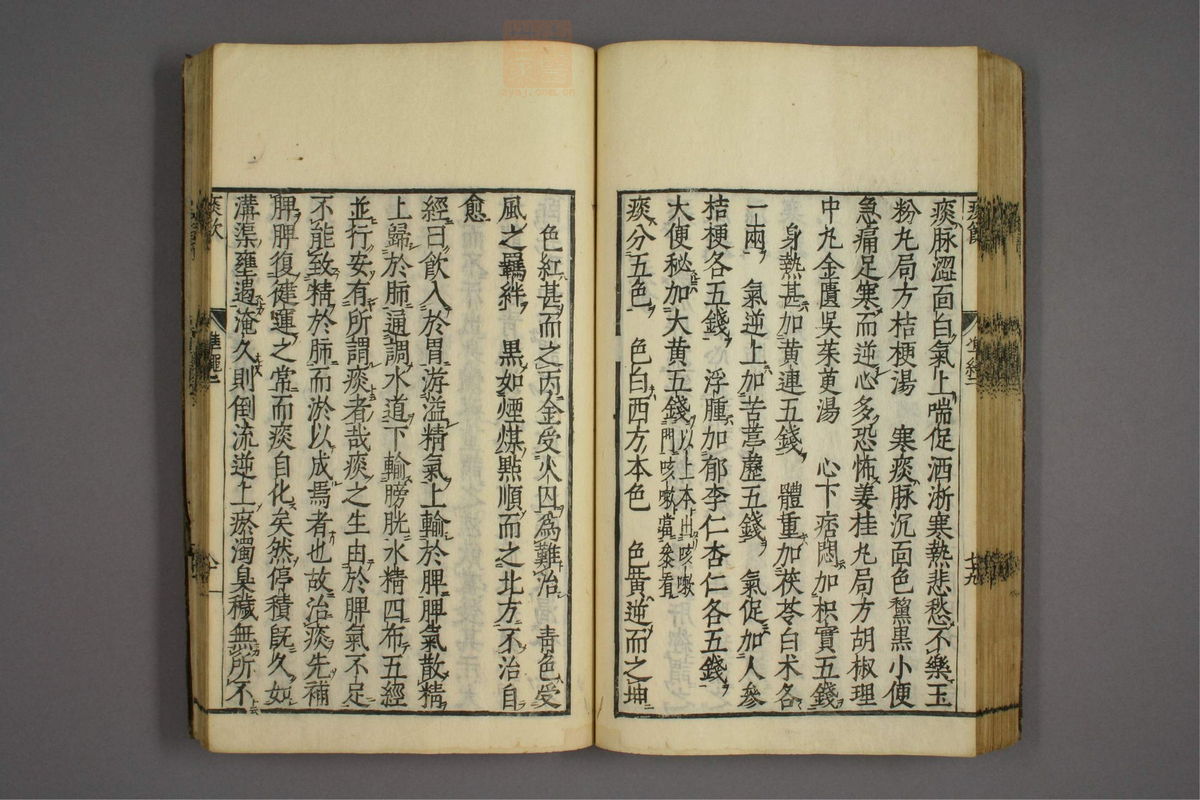 痰飲
準繩二
七十九
痰脉澀面白氣上喘促洒淅寒熱悲愁不樂玉
粉丸局方桔梗湯　寒痰脉沉面色黧黒小便
急痛足寒而逆心多恐怖姜桂丸局方胡椒理
中丸金匱吳茱萸湯　心下痞悶加枳實五錢
身熱甚加黄連五錢　體重加茯苓白朮各
一兩　氣逆上加苦葶藶五錢　氣促加人參
桔梗各五錢　浮腫加郁李仁杏仁各五錢
大便秘加大黄五錢以上本出咳嗽門咳嗽當參看
痰分五色　色白西方本色　色黄逆而之坤
色紅甚而之丙金受火囚爲難治　靑色受
風之羈絆　黒如煙煤點順而之北方不治自
愈
經曰飲入於胃游溢精氣上輸於脾脾氣散精
上歸於肺通調水道下輸膀胱水精四布五經
並行安有所謂痰者哉痰之生由於脾氣不足
不能致精於肺而淤以成焉者也故治痰先補
脾脾復健運之常而痰自化矣然停積既久如
溝渠壅遏淹久則倒流逆上瘀濁臭穢無所不
痰飲
準繩二